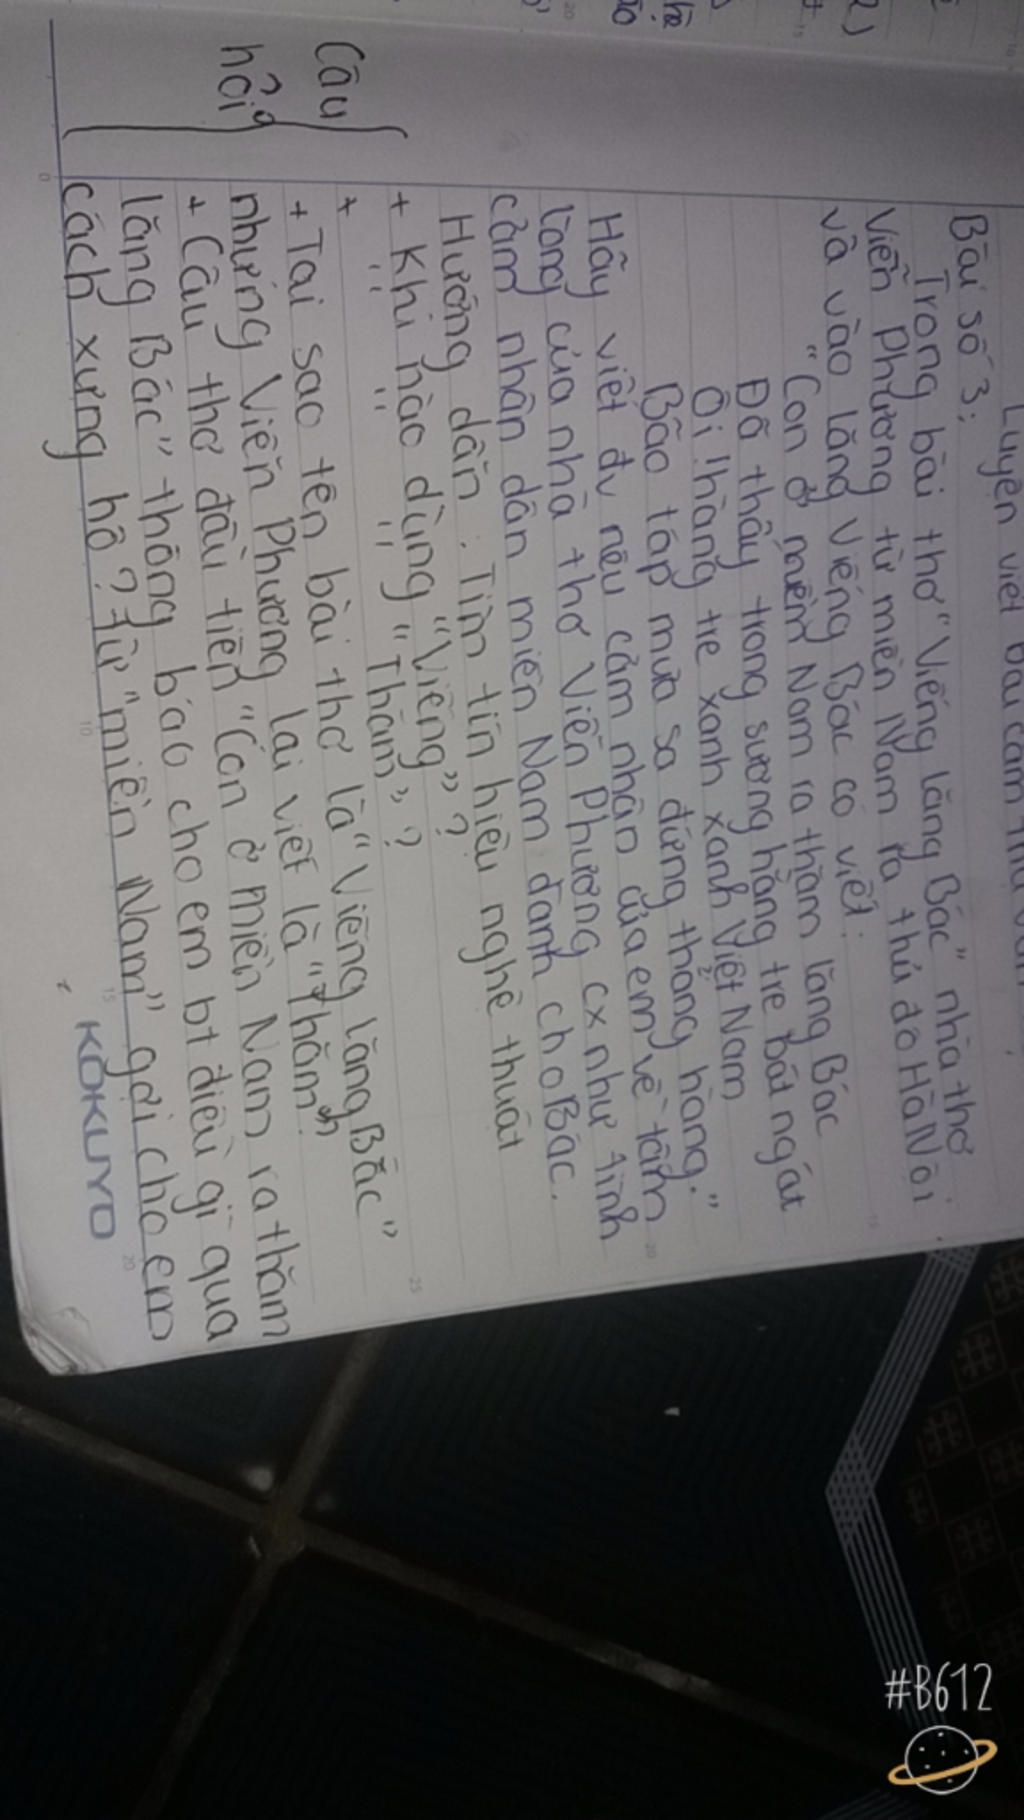 Luyện viết bài cảm thụ văn
Bài số 3:
Trong bài thơ "Viếng lăng Bác" nhà thơ
Viễn Phương từ miền Nam ra thủ đô Hà Nội
và vào lăng Viếng Bác có viết:
"Con ở miền Nam ra thăm lăng Bác
Đã thấy trong sương hàng tre bát ngát
Ôi! hàng tre xanh xanh Việt Nam
Bão táp mưa sa đứng thẳng hàng."
Hãy viết đv nêu cảm nhận của em về tấm
lòng của nhà thơ Viễn Phương cx như tình
cảm nhân dân miền Nam dành cho Bác.
Hướng dẫn: Tìm tín hiệu nghệ thuật
+ Khi nào dùng "Viếng"?
+ " " " " " " "Thăm"?
+ Tại sao tên bài thơ là "Viếng lăng Bác"
nhưng Viễn Phương lại viết là "Thăm"
+ Câu thơ đầu tiên "Con ở miền Nam ra thăm
lăng Bác" thông báo cho em bt điều gì qua
cách xưng hô? Từ "miền Nam" gợi cho em
Câu
hỏi
KOKUYO
#B612